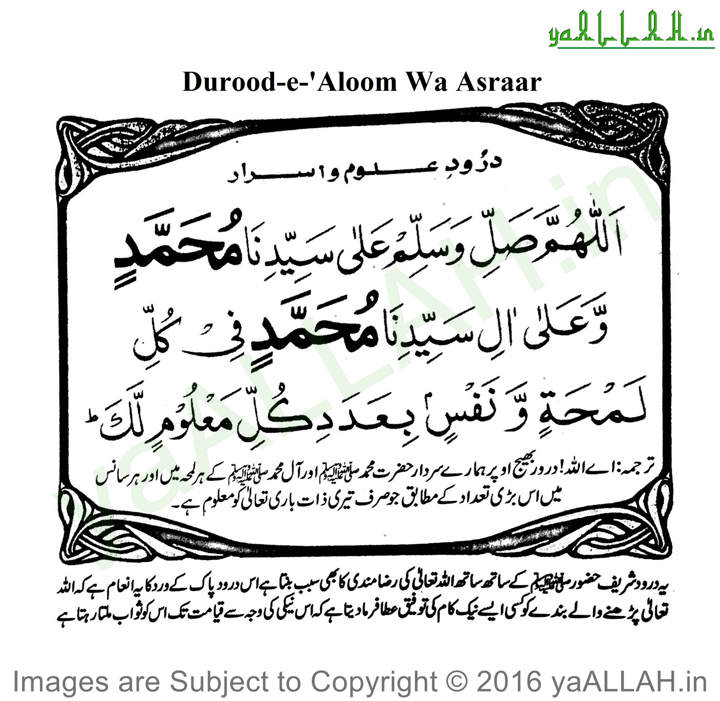 yaALLAH.in
Durood-e-'Aloom Wa Asraar
درُودِ علوم و اسرار
اَللّٰهُمَّ صَلِّ وَسَلِّمْ عَلٰى سَيِّدِنَا مُحَمَّدٍ
وَّعَلٰى اٰلِ سَيِّدِنَا مُحَمَّدٍ فِىْ كُلِّ
لَمْحَةٍ وَّ نَفَسٍ بِعَدَدِ كُلِّ مَعْلُوْمٍ لَّكَ ط
ترجمہ: اے اللہ! درود بھیج اوپر ہمارے سردار حضرت محمد ﷺ اور آل محمد ﷺ کے ہر لمحہ میں اور ہر سانس
میں اس بڑی تعداد کے مطابق جو صرف تیری ذات باری تعالیٰ کو معلوم ہے۔
یہ درود شریف حضور ﷺ کے ساتھ ساتھ اللہ تعالیٰ کی رضا مندی کا بھی سبب بنتا ہے اس درود پاک کے ورد کا یہ انعام ہے کہ اللہ
تعالیٰ پڑھنے والے بندے کو کسی ایسے نیک کام کی توفیق عطا فرما دیتا ہے کہ اس نیکی کی وجہ سے قیامت تک اس کو ثواب ملتا رہتا ہے
yaALLAH.in
Images are Subject to Copyright © 2016 yaALLAH.in